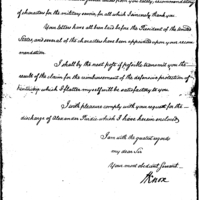 of characters for the military service, for all which I sincerely thank you.
Your letters have all been laid before the President of the United
States, and several of the characters have been appointed upon your recom-
mendation.
I shall by the next post if possible transmit you the
result of the claim for the reimbursement of the defensive protection of
Kentucky which I flatter myself will be satisfactory to you.
I with pleasure comply with your request for the
discharge of Alexander which I have herein enclosed.
I am with the greatest regard
my dear Sir
Your most obedient Servant
HKnox